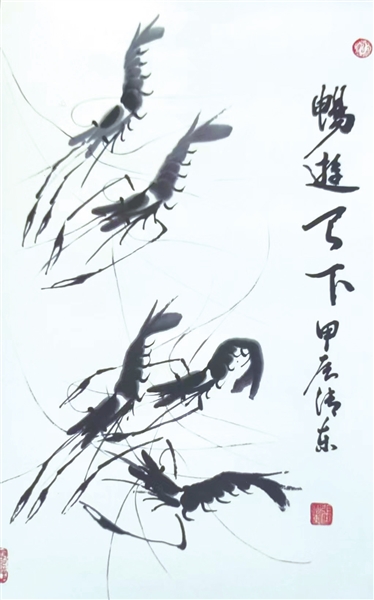 暢遊天下甲辰清东